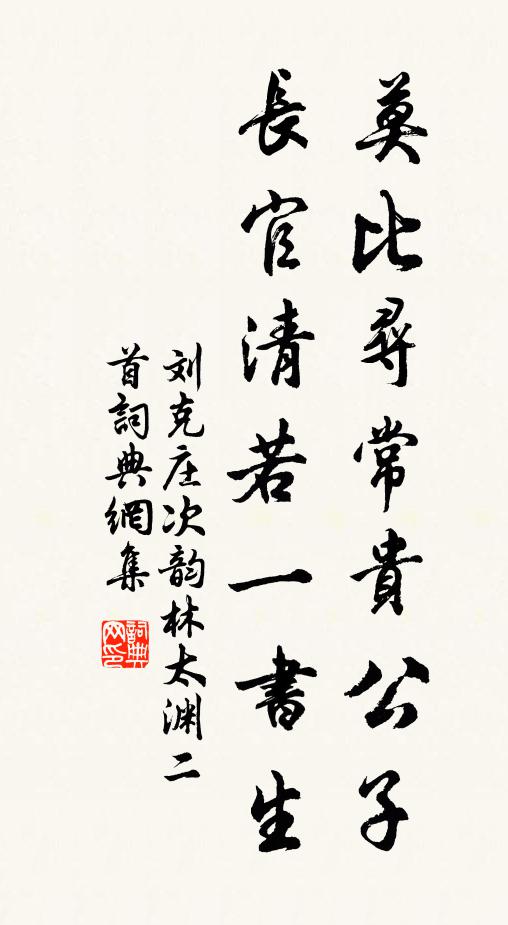 莫比尋常貴公子
長官清若一書生
刘克庄次韵林太渊二
首詞典網集
詞典网印